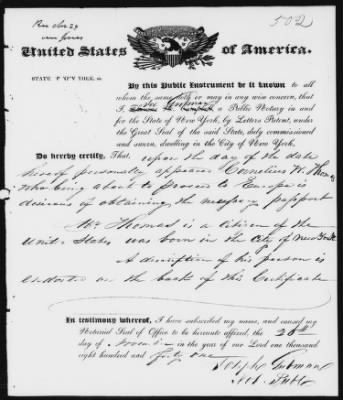 502
United States of America.
STATE OF NEW YORK, ss.
By this Public Instrument be it known to all
whom the same doth or may in any wise concern, that
I, a Public Notary in and
for the State of New York, by Letters Patent, under
the Great Seal of the said State, duly commissioned
and sworn, dwelling in the City of New York,
Do hereby certify, That, upon the day of the date
hereof personally appeared Cornelius W. Thomas
who being about to proceed to Europe is
desirous of obtaining the necessary passport
Mr Thomas is a citizen of the
United States was born in the City of New York
A description of his person is
endorsed on the back of this Certificate
In testimony whereof, I have subscribed my name, and caused my
Notarial Seal of Office to be hereunto affixed, the 20th
day of November in the year of our Lord one thousand
eight hundred and forty one
Joseph Gutman
Not. Public